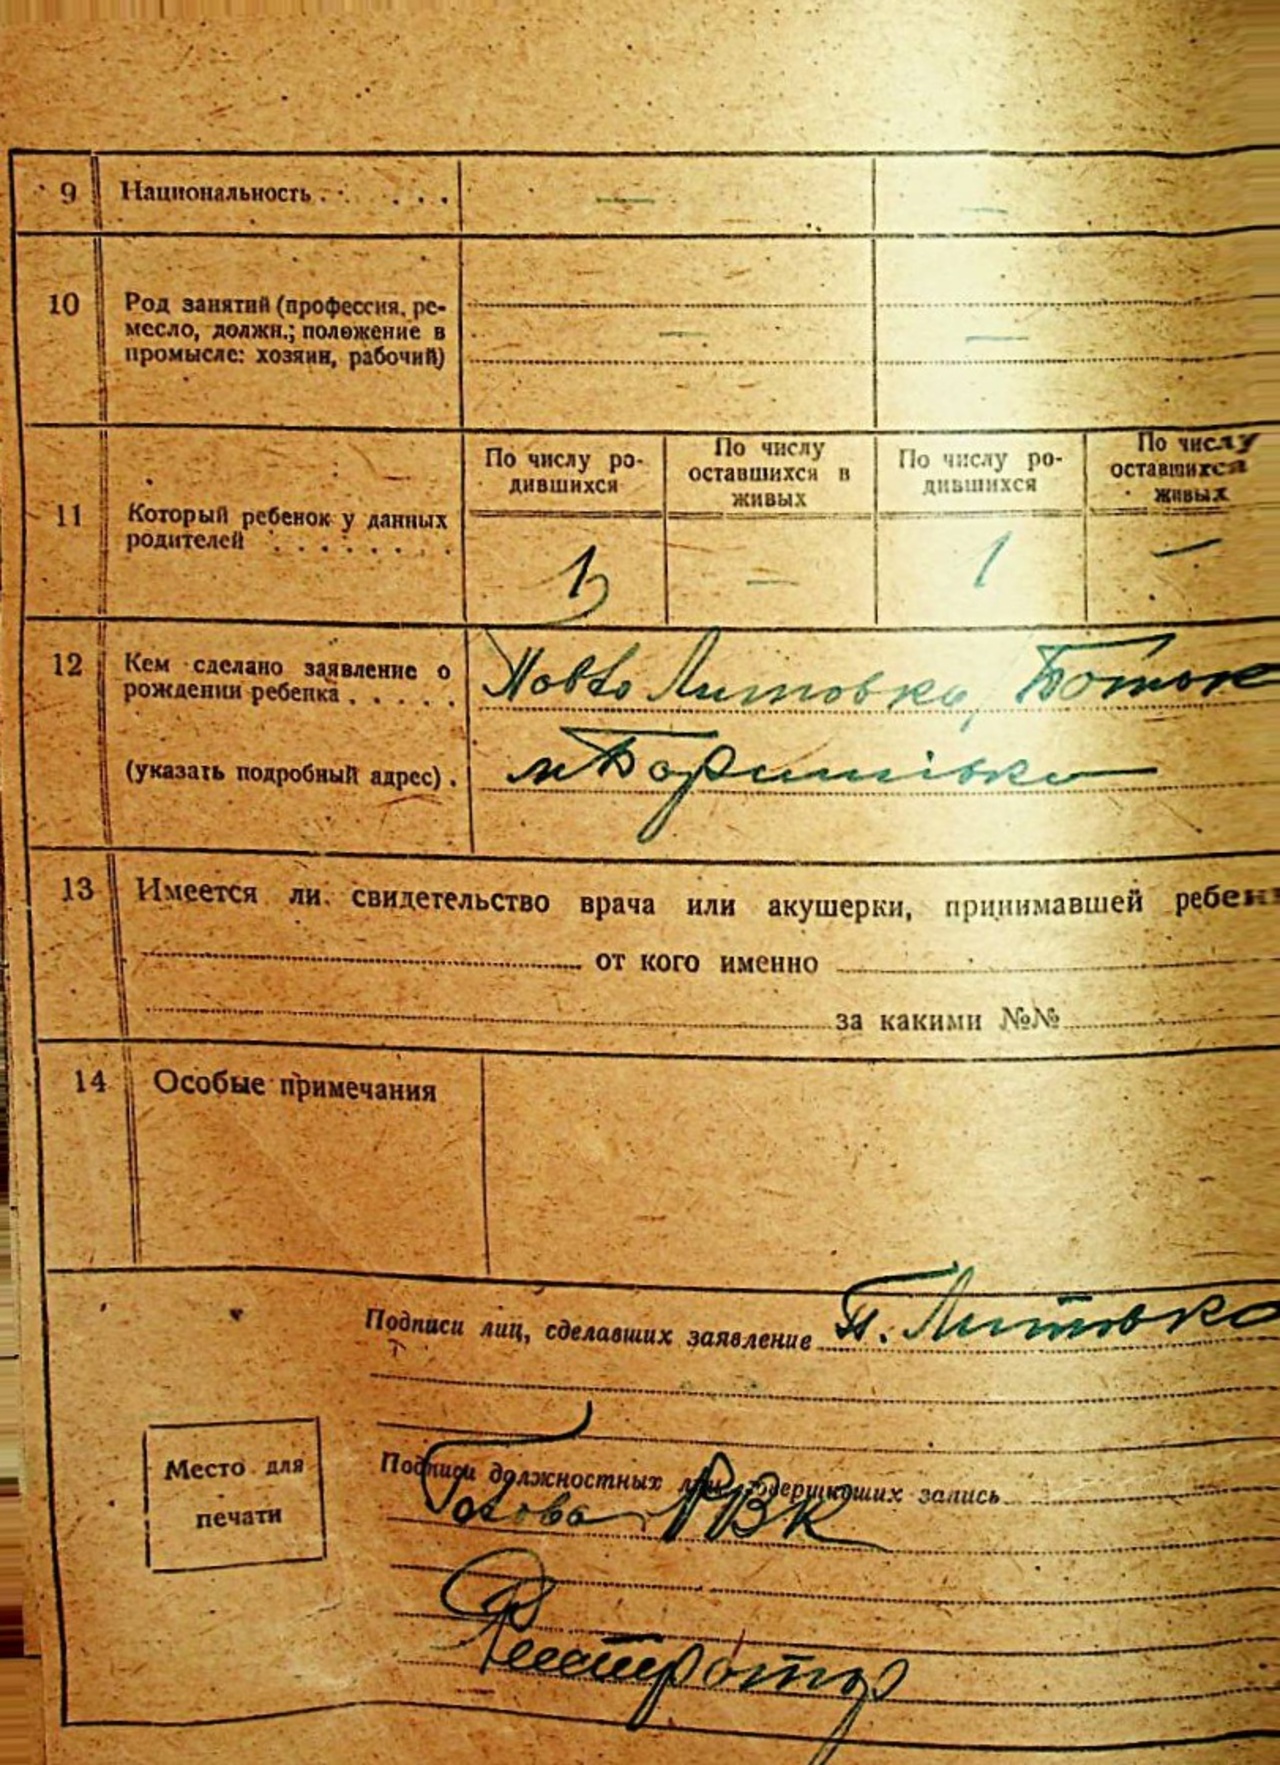 9 Национальность . . . . . . — —
10 Род занятий (профессия, ре-
месло, должн.; положение в — —
промысле: хозяин, рабочий)
По числу ро- По числу По числу ро- По числу
дившихся оставшихся в дившихся оставшихся
живых живых
11 Который ребенок у данных
родителей . . . . . . . . 1 — 1 —
12 Кем сделано заявление о
рождении ребенка . . . . . Литовка, Батьк
(указать подробный адрес) . м Боришівка
13 Имеется ли свидетельство врача или акушерки, принимавшей ребен
от кого именно
за какими №№
14 Особые примечания
Подписи лиц, сделавших заявление П. Литовка
Место для печати
Подписи должностных лиц, совершивших запись
Голова РВК